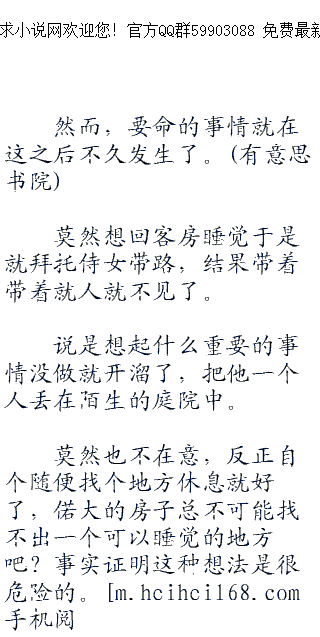 求小说网欢迎您！官方QQ群59903088 免费最新
然而，要命的事情就在
这之后不久发生了。(有意思
书院)
莫然想回客房睡觉于是
就拜托侍女带路，结果带着
带着就人就不见了。
说是想起什么重要的事
情没做就开溜了，把他一个
人丢在陌生的庭院中。
莫然也不在意，反正自
个随便找个地方休息就好
了，偌大的房子总不可能找
不出一个可以睡觉的地方
吧？事实证明这种想法是很
危险的。[m.hcihci168.com
手机阅